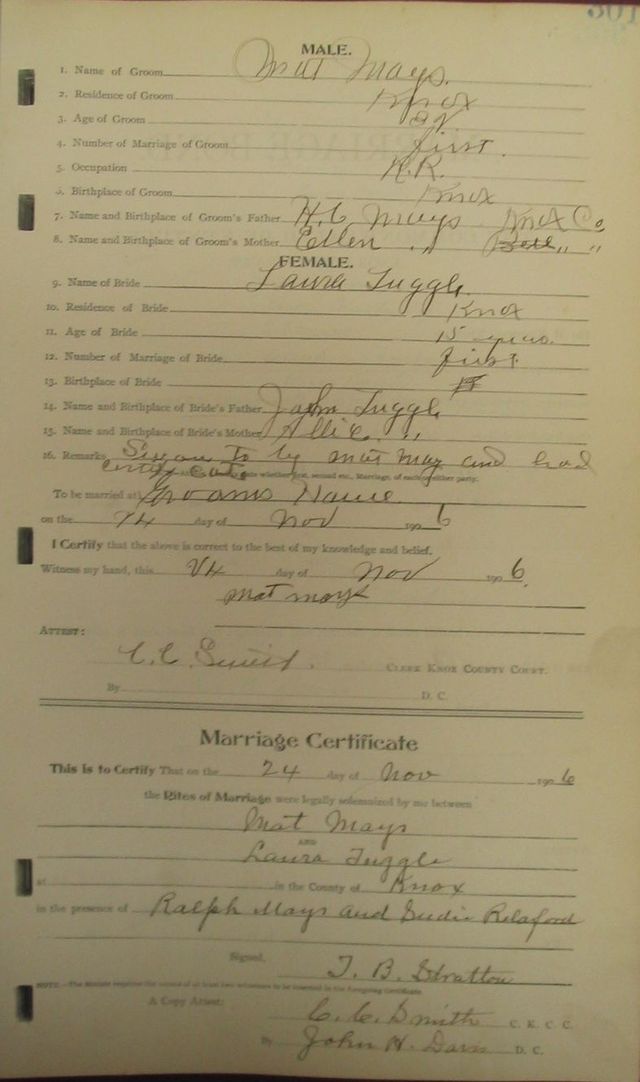 301
MALE.
1. Name of Groom Mat Mays.
2. Residence of Groom Knox
3. Age of Groom
4. Number of Marriage of Groom first.
5. Occupation R.R.
6. Birthplace of Groom Knox
7. Name and Birthplace of Groom's Father H.C. Mays Knox Co,
8. Name and Birthplace of Groom's Mother Ellen " Bell " "
FEMALE.
9. Name of Bride Laura Tuggle.
10. Residence of Bride Knox
11. Age of Bride 15 years.
12. Number of Marriage of Bride first.
13. Birthplace of Bride
14. Name and Birthplace of Bride's Father John Tuggle
15. Name and Birthplace of Bride's Mother Allie "
16. Remarks Sworn to by Mat May and had
certificate whether first, second etc., Marriage, of each or either party.
To be married at Grooms Home
on the 24 day of Nov 1906
I Certify that the above is correct to the best of my knowledge and belief.
Witness my hand, this 24 day of Nov 1906.
Mat Mays
ATTEST:
C.C. Smith. CLERK KNOX COUNTY COURT.
By D. C.
Marriage Certificate
This is to Certify That on the 24 day of Nov 1906
the Rites of Marriage were legally solemnized by me between
Mat Mays
AND
Laura Tuggle
at in the County of Knox
in the presence of Ralph Mays and Sudie Relaford
Signed, T. B. Stratton
NOTE.—The statute requires the names of at least two witnesses to be inserted in the foregoing Certificate.
A Copy Attest: C. C. Smith C. K. C. C.
By John H. Davis D. C.